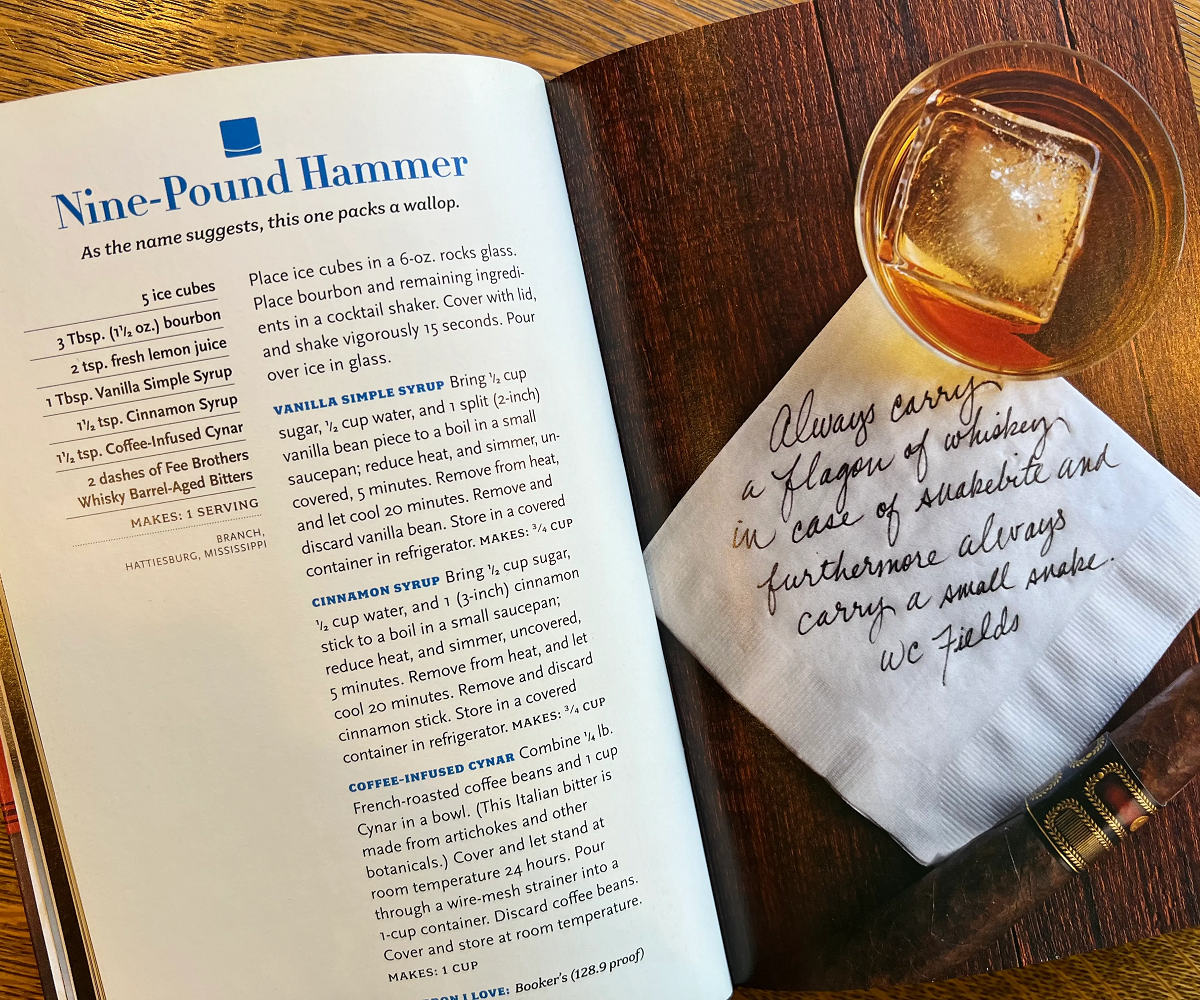 Nine-Pound Hammer
As the name suggests, this one packs a wallop.
5 ice cubes
3 Tbsp. (1½ oz.) bourbon
2 tsp. fresh lemon juice
1 Tbsp. Vanilla Simple Syrup
1½ tsp. Cinnamon Syrup
1½ tsp. Coffee-Infused Cynar
2 dashes of Fee Brothers
Whisky Barrel-Aged Bitters
MAKES: 1 SERVING
BRANCH,
HATTIESBURG, MISSISSIPPI
Place ice cubes in a 6-oz. rocks glass.
Place bourbon and remaining ingredi-
ents in a cocktail shaker. Cover with lid,
and shake vigorously 15 seconds. Pour
over ice in glass.
VANILLA SIMPLE SYRUP Bring ½ cup
sugar, ½ cup water, and 1 split (2-inch)
vanilla bean piece to a boil in a small
saucepan; reduce heat, and simmer, un-
covered, 5 minutes. Remove from heat,
and let cool 20 minutes. Remove and
discard vanilla bean. Store in a covered
container in refrigerator. MAKES: ¾ CUP
CINNAMON SYRUP Bring ½ cup sugar,
½ cup water, and 1 (3-inch) cinnamon
stick to a boil in a small saucepan;
reduce heat, and simmer, uncovered,
5 minutes. Remove from heat, and let
cool 20 minutes. Remove and discard
cinnamon stick. Store in a covered
container in refrigerator. MAKES: ¾ CUP
COFFEE-INFUSED CYNAR Combine ¼ lb.
French-roasted coffee beans and 1 cup
Cynar in a bowl. (This Italian bitter is
made from artichokes and other
botanicals.) Cover and let stand at
room temperature 24 hours. Pour
through a wire-mesh strainer into a
1-cup container. Discard coffee beans.
Cover and store at room temperature.
MAKES: 1 CUP
I LOVE: Booker's (128.9 proof)
Always carry
a flagon of whiskey
in case of snakebite and
furthermore always
carry a small snake.
WC Fields